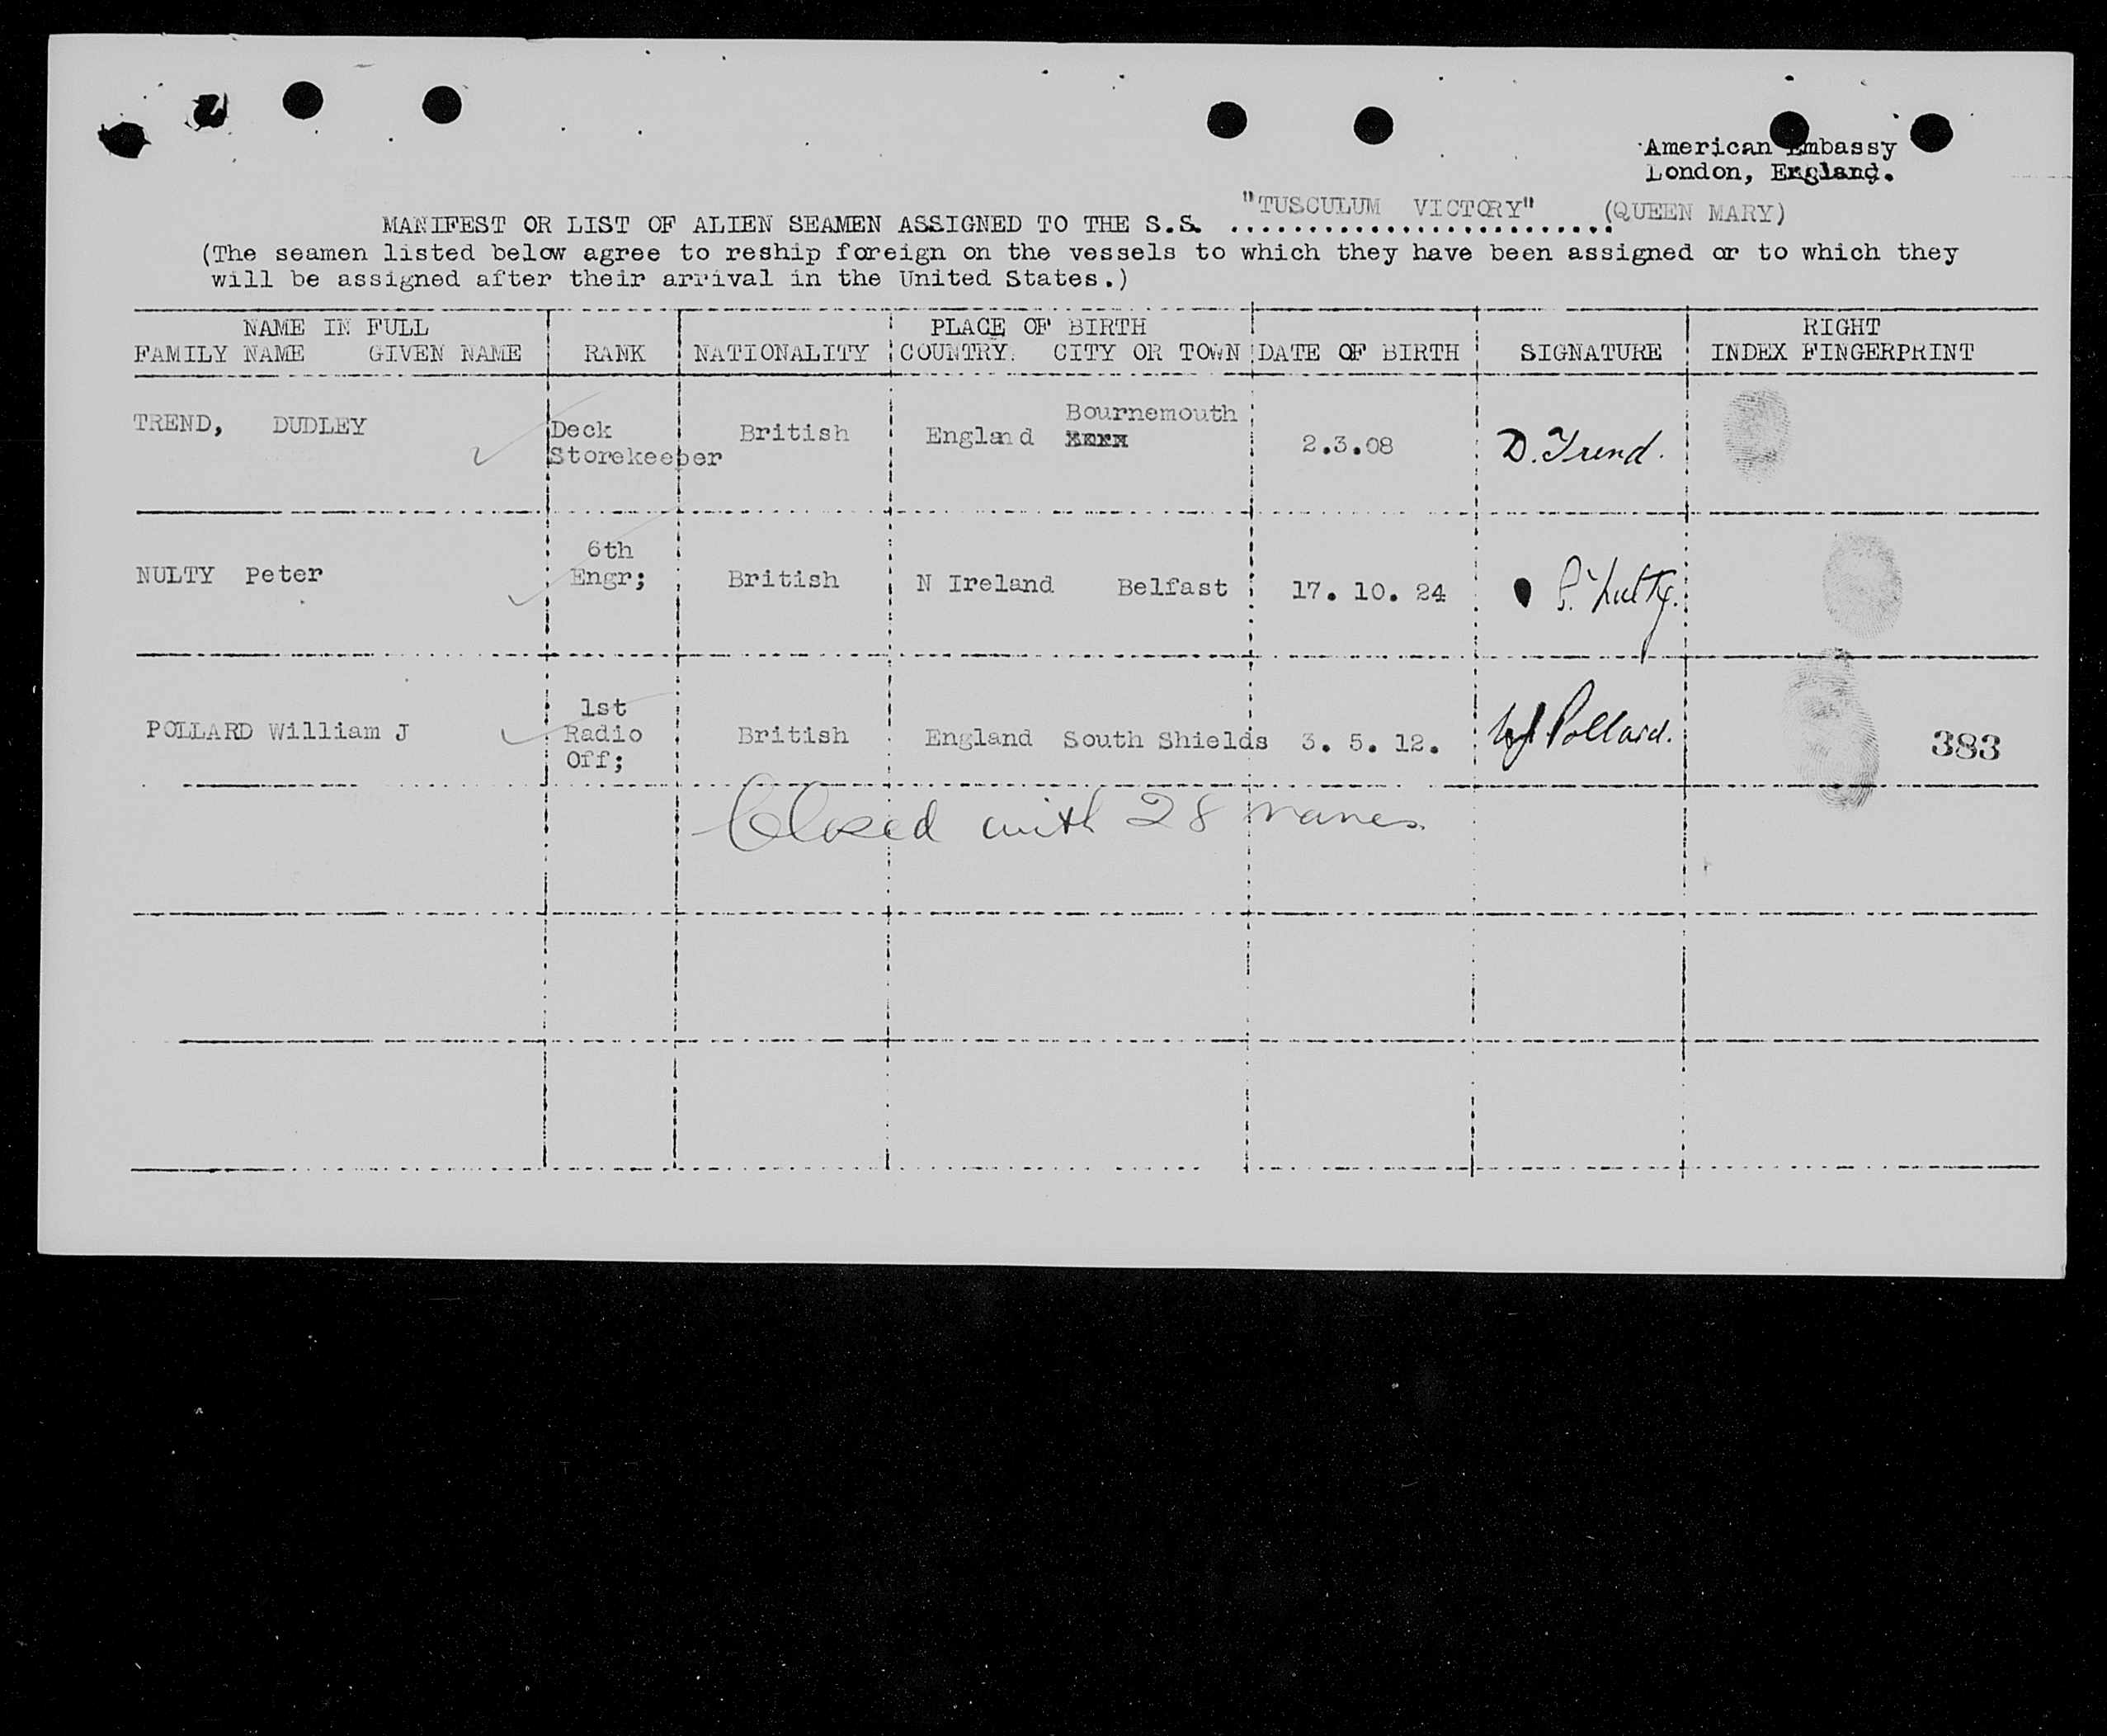 American Embassy
London, England.
"TUSCULUM VICTORY" (QUEEN MARY)
MANIFEST OR LIST OF ALIEN SEAMEN ASSIGNED TO THE S.S. ..........................
(The seamen listed below agree to reship foreign on the vessels to which they have been assigned or to which they
will be assigned after their arrival in the United States.)
NAME IN FULL PLACE OF BIRTH RIGHT
FAMILY NAME GIVEN NAME RANK NATIONALITY COUNTRY. CITY OR TOWN DATE OF BIRTH SIGNATURE INDEX FINGERPRINT
Bournemouth
TREND, DUDLEY Deck British England 2.3.08 D. Trend.
Storekeeper
6th
NULTY Peter Engr; British N Ireland Belfast 17. 10. 24 P. Nulty.
1st
POLLARD William J Radio British England South Shields 3. 5. 12. WJ Pollard. 383
Off;
Closed with 28 names